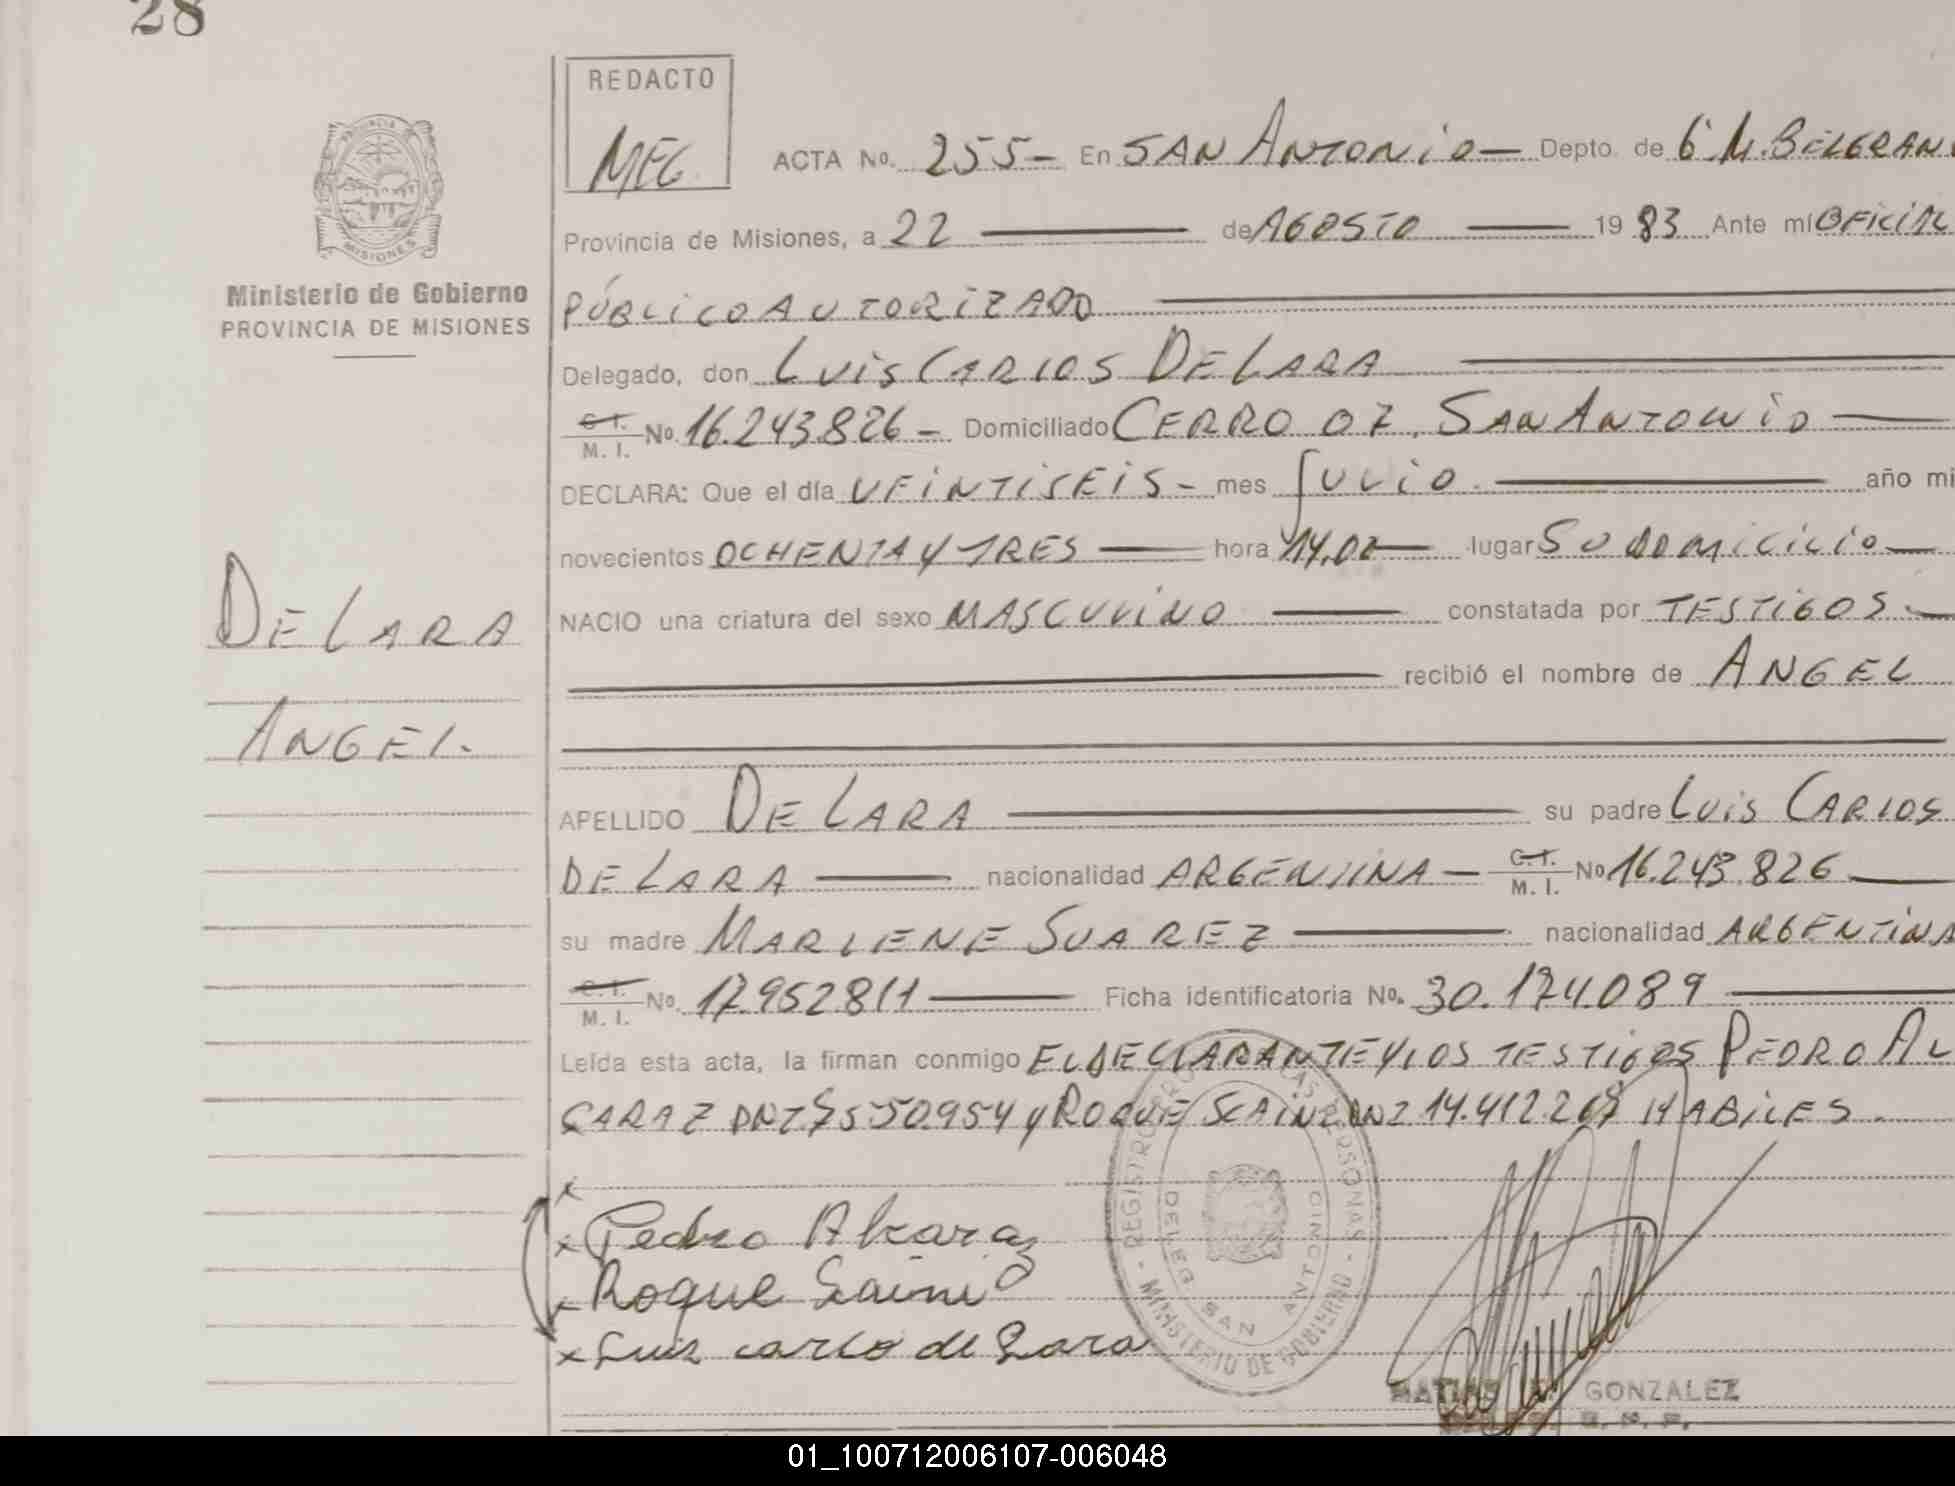 28
REDACTO
MEG.
ACTA No. 255- En SAN ANTONIO- Depto. de G M. BELGRAN
Provincia de Misiones, a 22 de AGOSTO 19 83 Ante mí OFICIAL
PÚBLICO AUTORIZADO
Ministerio de Gobierno
PROVINCIA DE MISIONES
Delegado, don LUIS CARLOS DE LARA
C. I. M. I. No. 16.243.826 - Domiciliado CERRO 07, SAN ANTONIO
DECLARA: Que el día VEINTISEIS - mes JULIO año mi
novecientos OCHENTA Y TRES hora 14,00 lugar SU DOMICILIO
NACIO una criatura del sexo MASCULINO constatada por TESTIGOS
recibió el nombre de ANGEL
DE LARA
ANGEL.
APELLIDO DE LARA su padre LUIS CARLOS
DE LARA nacionalidad ARGENTINA - C. I. M. I. No 16.243.826
su madre MARLENE SUAREZ nacionalidad ARGENTINA
C. I. M. I. No. 17.952.811 Ficha identificatoria No. 30.174.089
Leída esta acta, la firman conmigo EL DECLARANTE Y LOS TESTIGOS PEDRO AL
CARAZ DNI 7.550.954 y ROQUE SCAINI DNI HABILES.
x
x Pedro Alcaraz
x Roque Scaini
x Luiz carlo de Lara
REGISTRO LAS PERSONAS - MINISTERIO DE GOBIERNO -
DELEG. SAN ANTONIO
MATIAS GONZALEZ
01_100712006107-006048